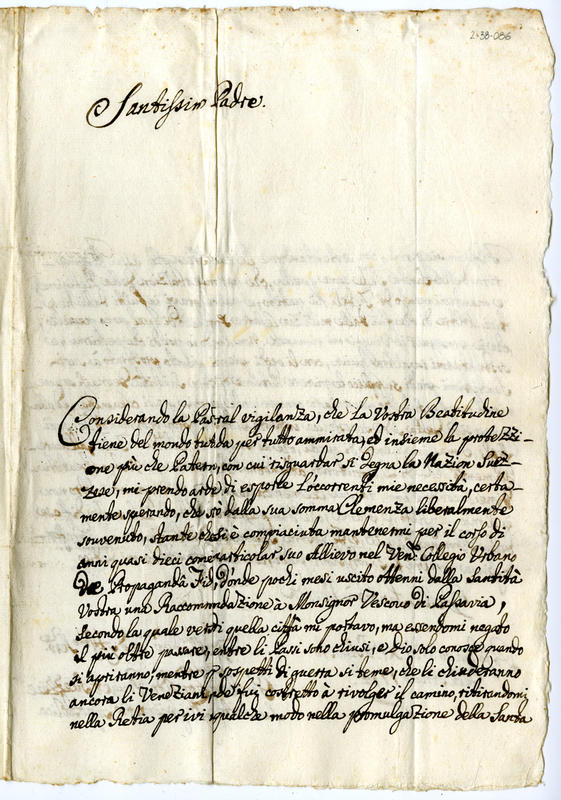 2-38-086
Santissim Padre.
Considerando la Pastral vigilanza, che La Vostra Beatitudine
tiene del mondo tutta per tutto ammirata, ed insieme la protezzi-
one più che Patern, con cui risguardar si degna la Nazion Svez-
zese, mi prendo arde di esporle Loccorrenti mie necessità, certa-
mente sperando, che so dalla sua somma Clemenza liberalmente
souvenuto, stante chesi è compiaciuta mantenermi per il corso di
anni quasi dieci come articolar suo Allievo nel Ven. Collegio Urbano
Dæ Propagandâ Fid, d'onde pochi mesi uscito ottenni dalla Santità
Vostra una Raccomndazione à Monsignor Vescouo di Passavia,
secondo la quale verso quella città mi portavo, ma essendomi negato
il più oltre passare, entre li Passi sono chiusi, e Dio solo conosce quando
si apriranno, mentre p sospetti di guerra si teme, che li chiuderanno
ancora li Veneziani, de fui costretto à rivolger il camino, ritirandomi
nella Retia per ivi qualche modo nella promulgazione della Santa